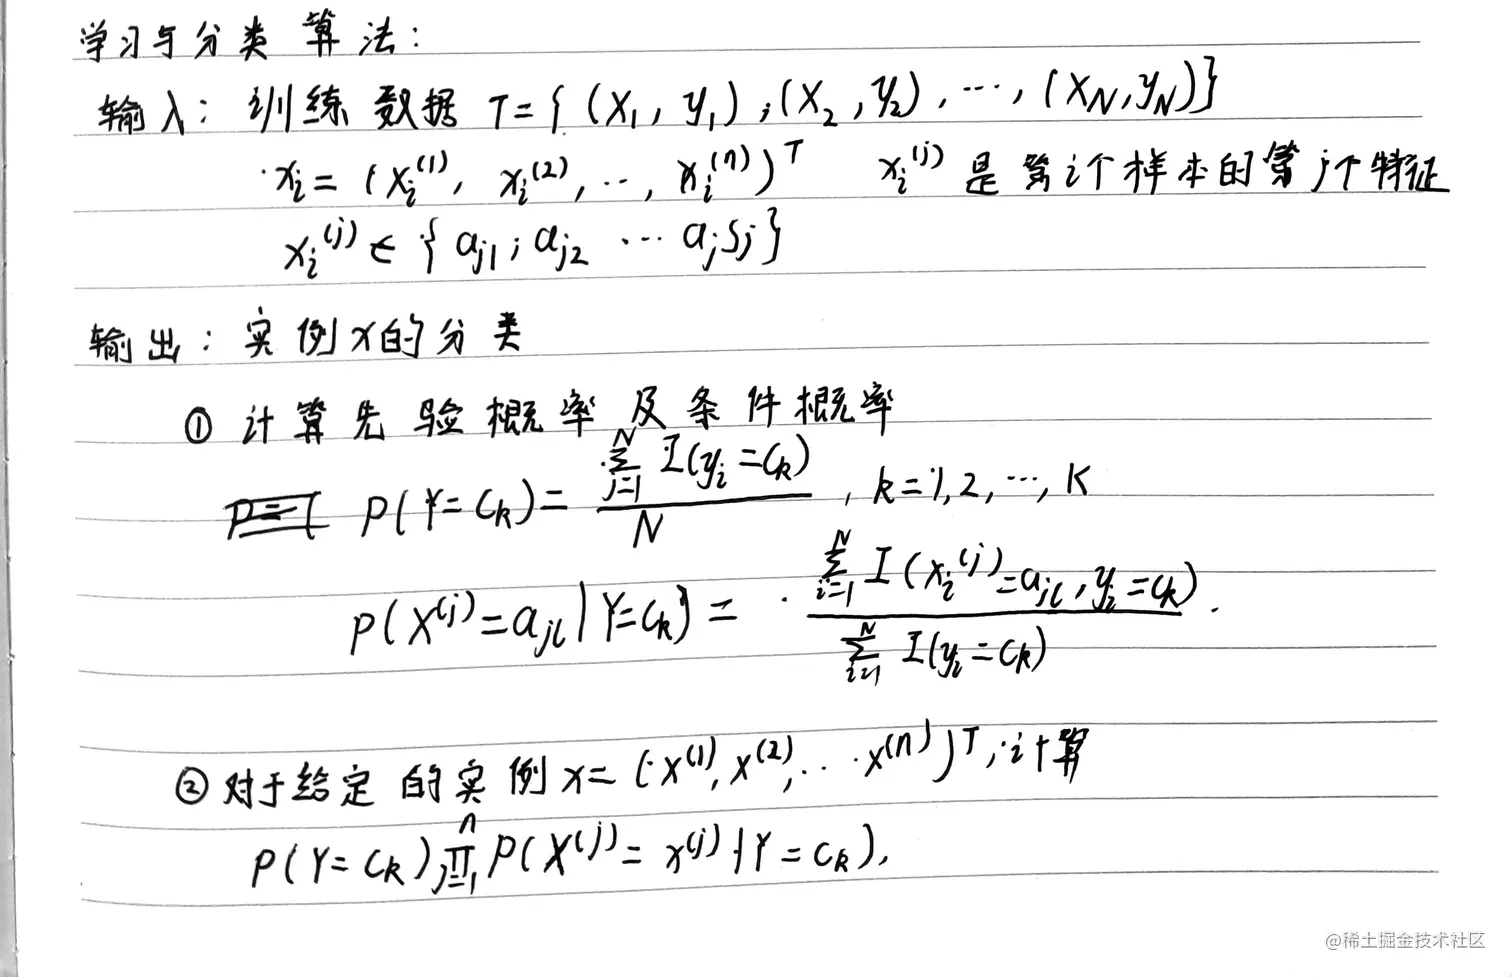 学习与分类算法:
输入: 训练数据 T={(x₁, y₁), (x₂, y₂), ..., (x_N, y_N)}
x_i = (x_i^(1), x_i^(2), .., x_i^(n))^T x_i^(j) 是第i个样本的第j个特征
x_i^(j) ∈ {a_j1, a_j2 ... a_jSj}
输出: 实例x的分类
① 计算先验概率及条件概率
P(Y=C_k) = \frac{\sum_{j=1}^{N} I(y_i=C_k)}{N}, k=1,2,...,K
P(X^(j)=a_jl|Y=C_k) = \frac{\sum_{i=1}^{N} I(x_i^(j)=a_jl, y_i=C_k)}{\sum_{i=1}^{N} I(y_i=C_k)}.
② 对于给定的实例x=(x^(1), x^(2), ... x^(n))^T, 计算
P(Y=C_k) \prod_{j=1}^{n} P(X^(j)=x^(j)|Y=C_k),
@稀土掘金技术社区